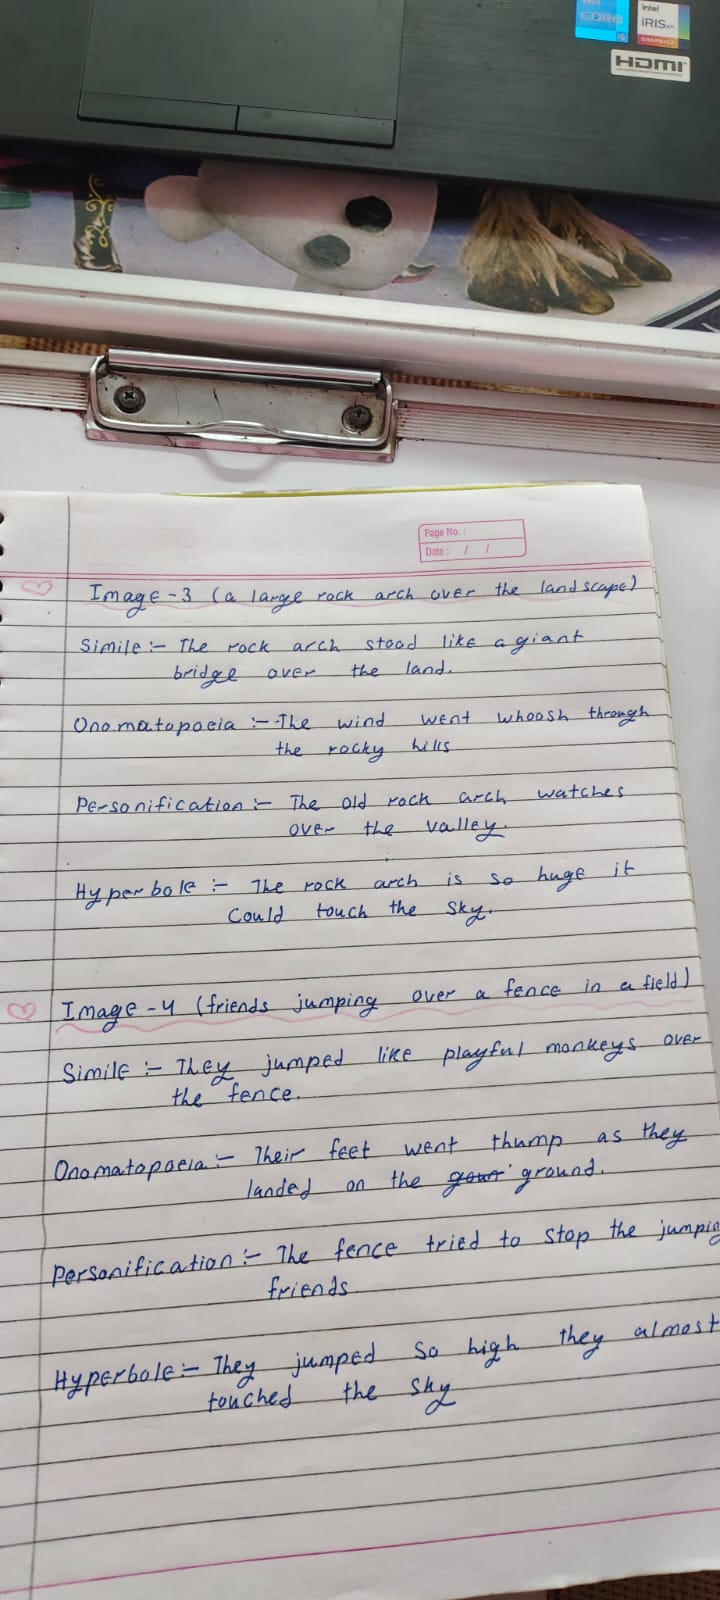 intel
CORE
i5
intel
iRIS xe
GRAPHICS
HDMI
Page No. :
Date : / /
Image - 3 (a large rock arch over the landscape)
Simile :- The rock arch stood like a giant
bridge over the land.
Onomatopoeia :- The wind went whoosh through
the rocky hills
Personification :- The old rock arch watches
over the valley.
Hyperbole :- The rock arch is so huge it
could touch the sky.
Image - 4 (friends jumping over a fence in a field)
Simile :- They jumped like playful monkeys over
the fence.
Onomatopoeia :- Their feet went thump as they
landed on the ground.
Personification :- The fence tried to stop the jumping
friends
Hyperbole :- They jumped so high they almost
touched the sky